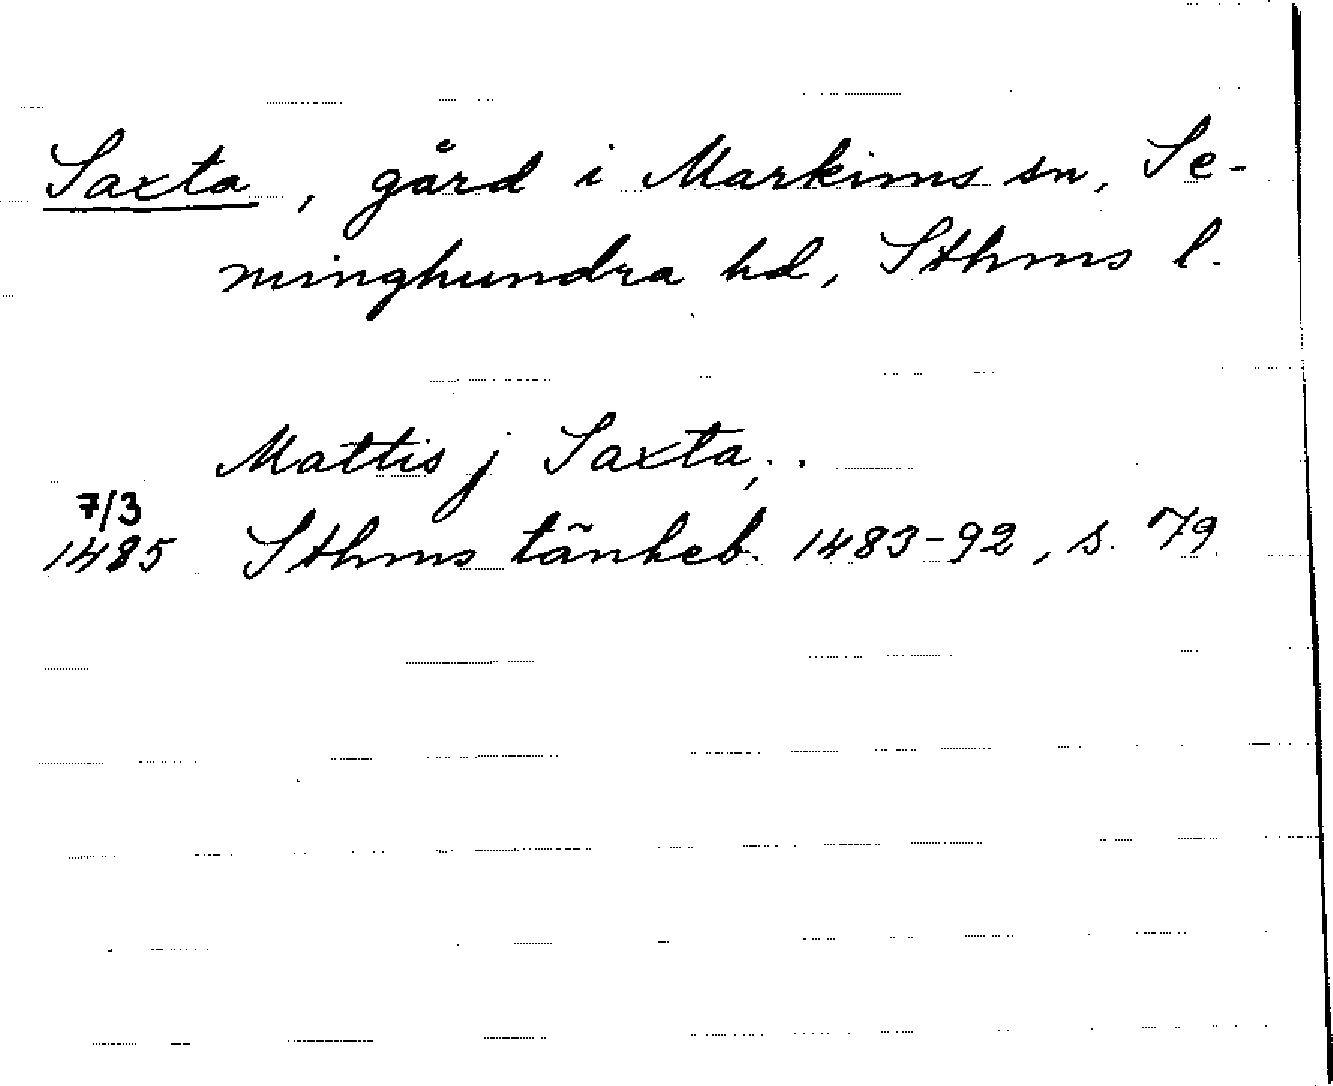 Saxta, gård i Markims sn, Se-
minghundra hd, Sthms l.
Mattis j Saxta,..
7/3
1485 Sthms tänkeb. 1483-92, s. 79